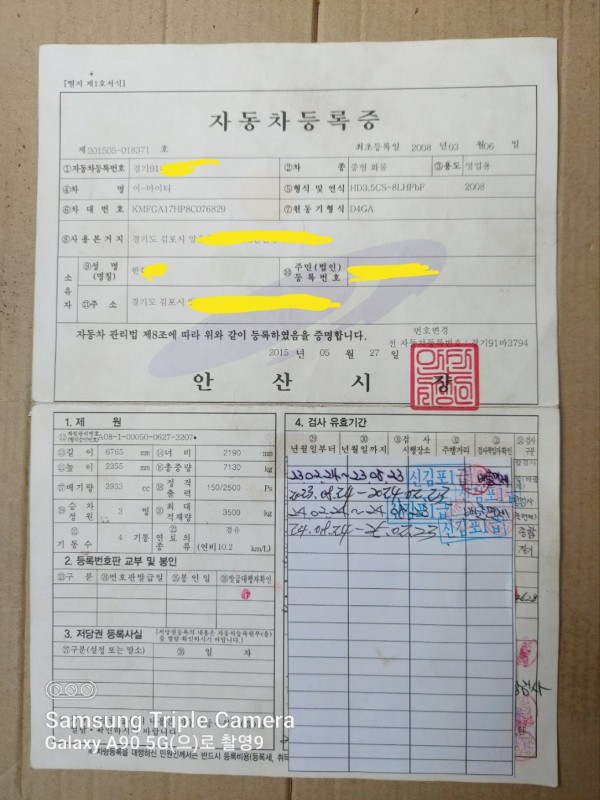 [별지 제1호서식]
자동차등록증
제 201505-018371 호 최초등록일 2008 년 03 월 06 일
①자동차등록번호 경기91 ②차 종 중형 화물 ③용도 영업용
④차 명 이-마이티 ⑤형식 및 연식 HD3.5CS-8LHFbF 2008
⑥차 대 번 호 KMFGA17HP8C076829 ⑦원동기형식 D4GA
⑧사용본거지 경기도 김포시
소유자 ⑨성 명 (명칭) 한 ⑩ 주민(법인) 등록번호
⑪주 소 경기도 김포시
자동차 관리법 제8조에 따라 위와 같이 등록하였음을 증명합니다.
번호변경
전 자동차등록번호 : 경기91바3794
2015 년 05 월 27 일
안 산 시 장
1. 제 원
제원관리번호 (형식승인번호) A08-1-00050-0627-2207
⑬길 이 6765 mm ⑭너 비 2190 mm
⑮높 이 2355 mm ⑯총중량 7130 kg
⑰배기량 3933 cc ⑱정격출력 150/2500 Ps
⑲승차정원 3 명 ⑳최대적재량 3500 kg
기통수 4 기통 연료의종류 경유 (연비10.2 km/L)
2. 등록번호판 교부 및 봉인
구 분 번호판발급일 봉인일 발급대행자확인
3. 저당권 등록사실 [저당권등록의 내용은 자동차등록원부(을)를 열람·확인하시기 바랍니다.]
구분(설정 또는 말소) 일 자
4. 검사 유효기간
년월일부터 년월일까지 검 사 시행장소 주행거리 검사책임자확인 검사구분
23.02.24~23.08.23 신김포1급
2023.08.24 - 2024.02.23
24.08.24 신김포1급
열람·확인하시기 바랍니다.
※ 차량등록을 대행하신 민원인께서는 반드시 등록비용(등록세, 취득
Samsung Triple Camera
Galaxy A90 5G(으)로 촬영9